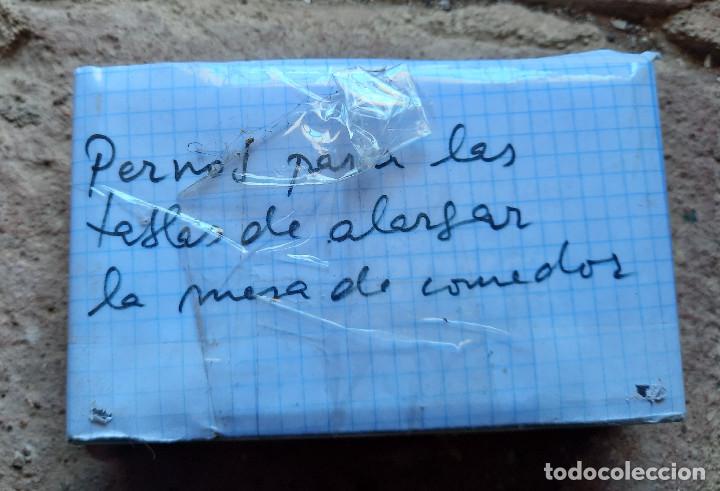 Pernos para las
tablas de alargar
la mesa de comedor
todocoleccion